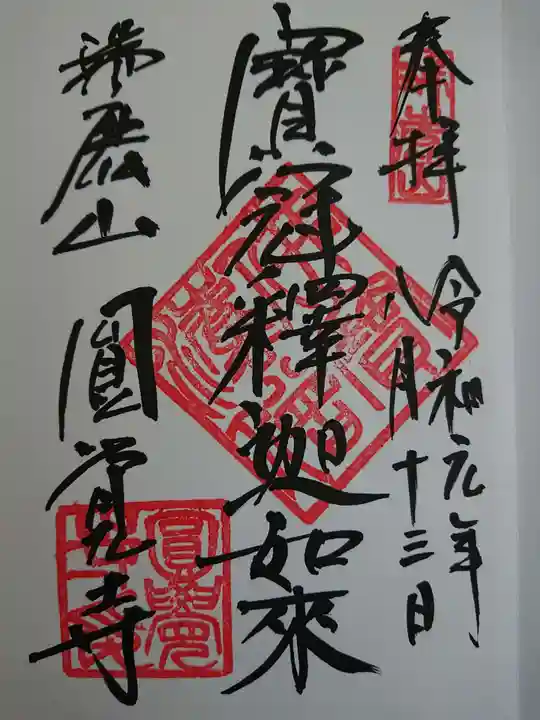 奉拝
令和元年
八月十三日
寶冠釋迦如來
瑞鹿山
圓覚寺